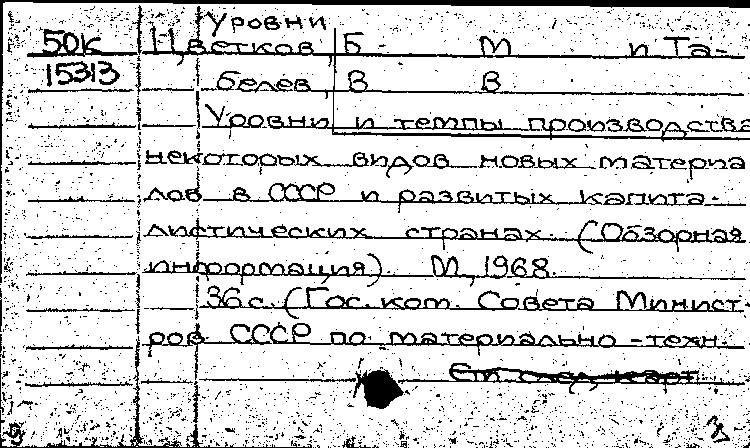 Уровни
50к Цветков, Б. М. и Та-
15313 белев, В. В.
Уровни и темпы производства
некоторых видов новых материа
лов в СССР и развитых капита-
листических странах. (Обзорная
информация). М., 1968.
36 с. (Гос. ком. Совета Минист-
ров СССР по материально-техн.
См. след. карт.